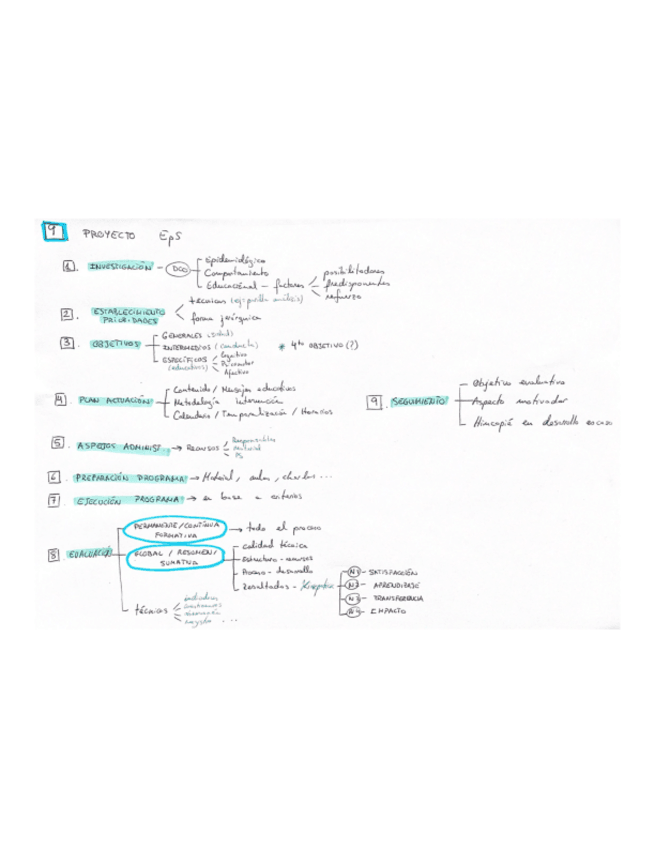 9 PROYECTO EpS
1. INVESTIGACIÓN - DCO
Epidemiológico
Comportamiento
Educacional - factores
posibilitadores
predisponentes
refuerzo
2. ESTABLECIMIENTO PRIORIDADES
técnicas
forma jerárquica
3. OBJETIVOS
GENERALES (salud)
INTERMEDIOS (conducta)
ESPECÍFICOS (educativos)
Cognitivo
Psicomotor
Afectivo
* 4to OBJETIVO (?)
4. PLAN ACTUACIÓN
Contenido / Mensajes educativos
Metodología Intervención
Calendario / Temporalización / Horarios
5. ASPECTOS ADMINIST. → RECURSOS
Responsables
Material
6. PREPARACIÓN PROGRAMA → Material, aulas, charlas ...
7. EJECUCIÓN PROGRAMA → en base a criterios
8. EVALUACIÓN
PERMANENTE / CONTINUA FORMATIVA → todo el proceso
GLOBAL / RESUMEN / SUMATIVA
calidad técnica
Estructura - recursos
Proceso - desarrollo
Resultados - Kirkpatrick
N1 - SATISFACCIÓN
N2 - APRENDIZAJE
N3 - TRANSFERENCIA
N4 - IMPACTO
técnicas
...
9. SEGUIMIENTO
Objetivo evaluativo
Aspecto motivador
Hincapié en desarrollo escaso